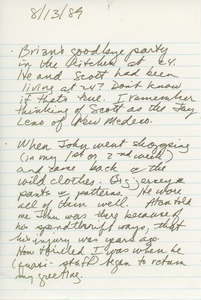 8/13/89
· Brian's goodbye party
in the kitchen at 24.
He and Scott had been
living at 24? Don't know
if that's true. I remember
thinking of Scott as the Jay
Leno of New Mexico.
· When John went shopping
(in my 1st or 2nd week)
and came back the
wild clothes.
pants patterns. He wore
all of them well. told
me John was there because of
his spendthrift ways, that
his injury was years ago.
How thrilled I was when he
(quasi-staff) began to return
my greeting.